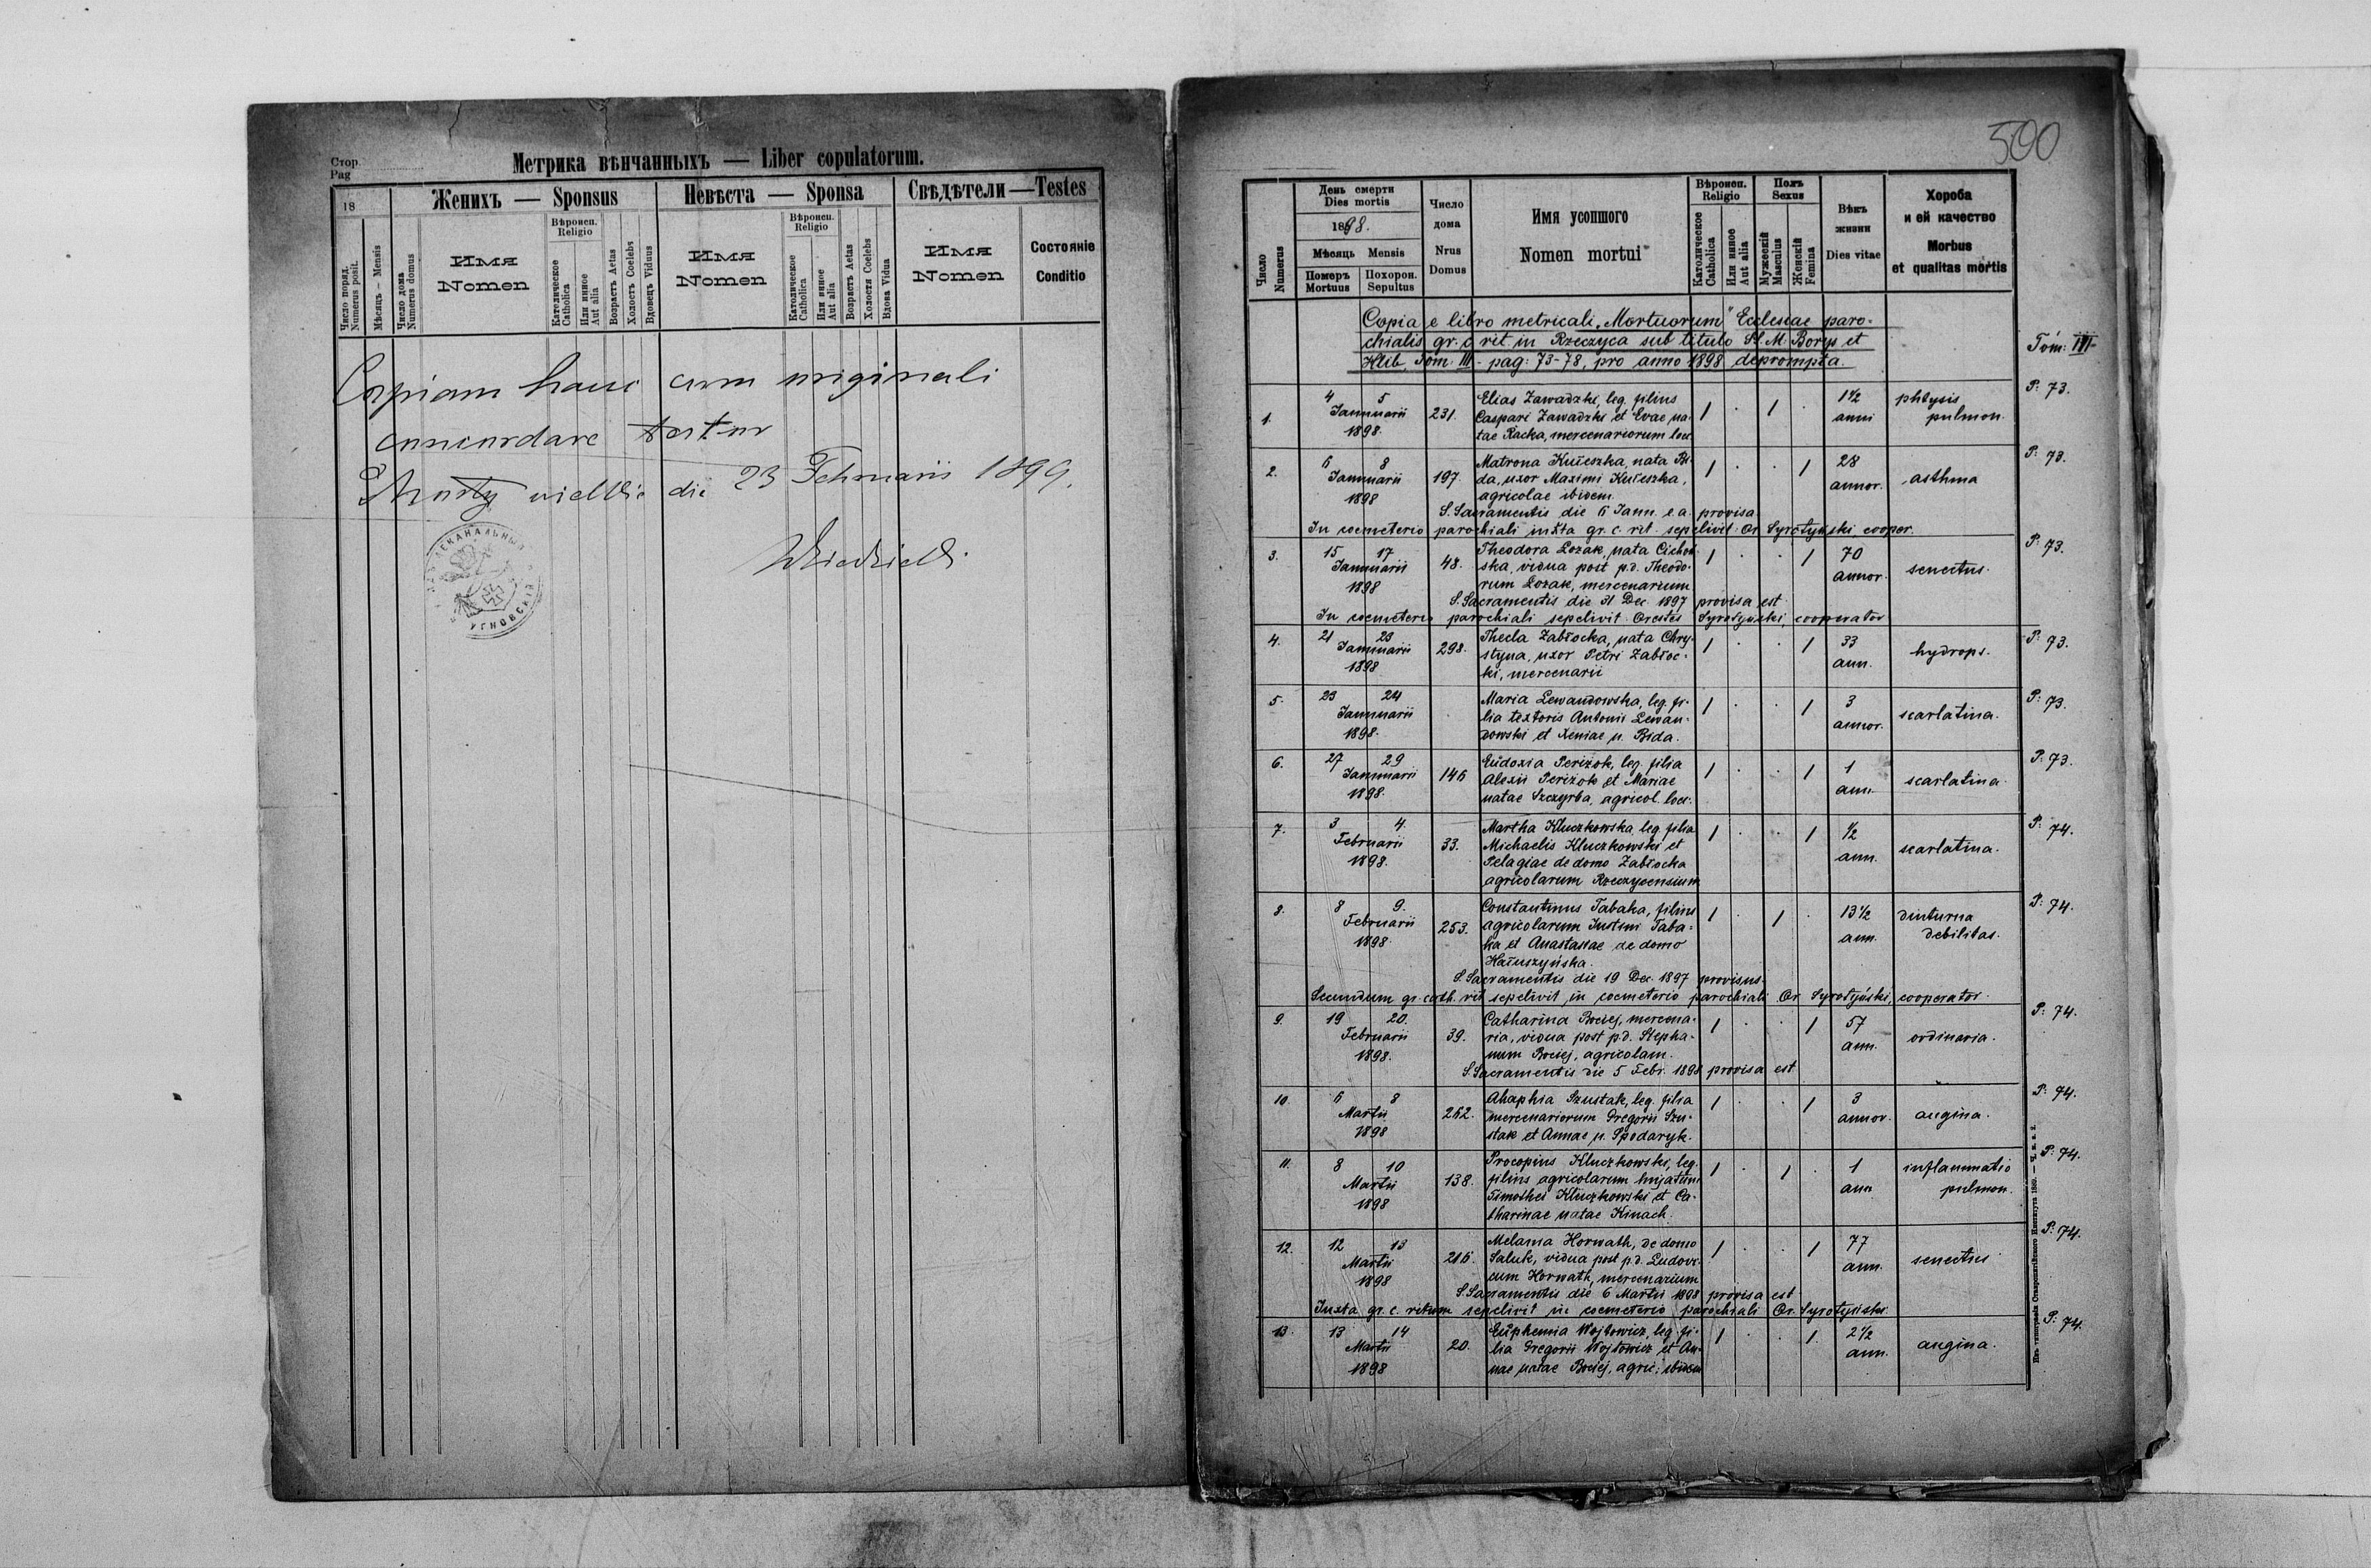 Стор.
Pag
Метрика вѣнчанныхъ — Liber copulatorum.
18
Женихъ — Sponsus
Невѣста — Sponsa
Свѣдѣтели — Testes
Число поряд.
Numerus posit.
Мѣсяць — Mensis
Число дома
Numerus domus
Имя
Nomen
Вѣроисп.
Religio
Католическое
Catholica
Или инное
Aut alia
Возрастъ Aetas
Холостъ Coelebs
Вдовецъ Viduus
Имя
Nomen
Вѣроисп.
Religio
Католическое
Catholica
Или инное
Aut alia
Возрастъ Aetas
Холостя Coelebs
Вдова Vidua
Имя
Nomen
Состоянie
Conditio
Copiam hanc cum originali
concordare testor
die 23 Februarii 1899.
УГНОВСКIЙ
500
Число
Numerus
День смерти
Dies mortis
1898.
Мѣсяць Mensis
Померъ
Mortuus
Похорон.
Sepultus
Число
дома
Nrus
Domus
Имя усопшого
Nomen mortui
Вѣроисп.
Religio
Католическое
Catholica
Или инное
Aut alia
Полъ
Sexus
Мужескій
Masculus
Женскій
Femina
Вѣкъ
жизни
Dies vitae
Хороба
и ей качество
Morbus
et qualitas mortis
Copia e libro metricali „Mortuorum" Ecclesiae paro-
chialis gr. c. rit in Rzeczyca sub titulo SS. M. Borys et
Hlib, Tom. III - pag: 73-78, pro anno 1898 deprompta.
Tom: III
1. 4 5 Januarii 1898. 231.
Elias Zawadzki, leg. filius
Caspari Zawadzki et Evae na-
tae Racka, mercenariorum loci
1 . 1 . 1½ anni phtysis pulmon. P: 73.
2. 6 8 Januarii 1898 197.
Matrona Kułeszka, nata Bi-
da, uxor Maximi Kułeszka,
agricolae ibidem.
1 . . 1 28 annor. asthma P: 73.
S. Sacramentis die 6 Jann. e.a. provisa
In coemeterio parochiali iuxta gr. c. rit. sepelivit Or. Syrotyński, cooper.
3. 15 17 Januarii 1898 48.
Theodora Łozak, nata Cichoń-
ska, vidua post p.d. Theodo-
rum Łozak, mercenarium
1 . . 1 70 annor. senectus. P: 73.
S. Sacramentis die 31 Dec. 1897 provisa est
In coemeterio parochiali sepelivit Orestes Syrotyński, cooperator
4. 21 23 Januarii 1898 298.
Thecla Zabłocka, nata Chry-
styna, uxor Petri Zabłoc-
ki, mercenarii
1 . . 1 33 ann. hydrops. P: 73.
5. 23 24 Januarii 1898.
Maria Lewandowska, leg. fi-
lia textoris Antonii Lewan-
dowski et Xeniae n. Bida.
1 . . 1 3 annor. scarlatina. P: 73.
6. 27 29 Januarii 1898. 146
Eudoxia Periżok, leg. filia
Alexii Periżok et Mariae
natae Szczyrba, agricol. loci.
1 . . 1 1 ann. scarlatina. P: 73.
7. 3 4. Februarii 1898. 33.
Martha Kluczkowska, leg. filia
Michaelis Kluczkowski et
Pelagiae de domo Zabłocka
agricolarum Rzeczycensium
1 . . 1 ½ ann. scarlatina. P: 74.
8. 8 9. Februarii 1898. 253.
Constantinus Tabaka, filius
agricolarum Justini Taba-
ka et Anastasiae de domo
Hałuszyńska.
1 . 1 . 13½ ann. diuturna debilitas. P: 74.
S. Sacramentis die 19 Dec. 1897 provisus.
Secundum gr. cath. rit sepelivit in coemeterio parochiali Or. Syrotyński, cooperator.
9. 19 20. Februarii 1898. 39.
Catharina Bociej, mercena-
ria, vidua post p.d. Stepha-
num Bociej, agricolam.
1 . . 1 57 ann. ordinaria. P: 74.
S. Sacramentis die 5 Febr. 1898 provisa est
10. 6 8 Martii 1898 262.
Ahaphia Szustak, leg. filia
mercenariorum Gregorii Szu-
stak et Annae n. Spodaryk.
1 . . 1 3 annor. angina. P: 74.
11. 8 10 Martii 1898 138.
Procopius Kluczkowski, leg.
filius agricolarum hujatum
Timothei Kluczkowski et Ca-
tharinae natae Kinach.
1 . 1 . 1 ann inflammatio pulmon. P: 74.
12. 12 13 Martii 1898 216.
Melania Horwath, de domo
Saluk, vidua post p.d. Ludovi-
cum Horwath, mercenarium
1 . . 1 77 ann. senectus P: 74.
S. Sacramentis die 6 Martii 1898 provisa est
Iuxta gr. c. ritum sepelivit in coemeterio parochiali Or. Syrotyński.
13. 13 14 Martii 1898 20.
Euphemia Wojtowicz, leg. fi-
lia Gregorii Wojtowicz et An-
nae natae Bociej, agric. ibidem
1 . . 1. 2½ ann. angina. P: 74.
Изъ типографіи Ставропигійского Института 1889.